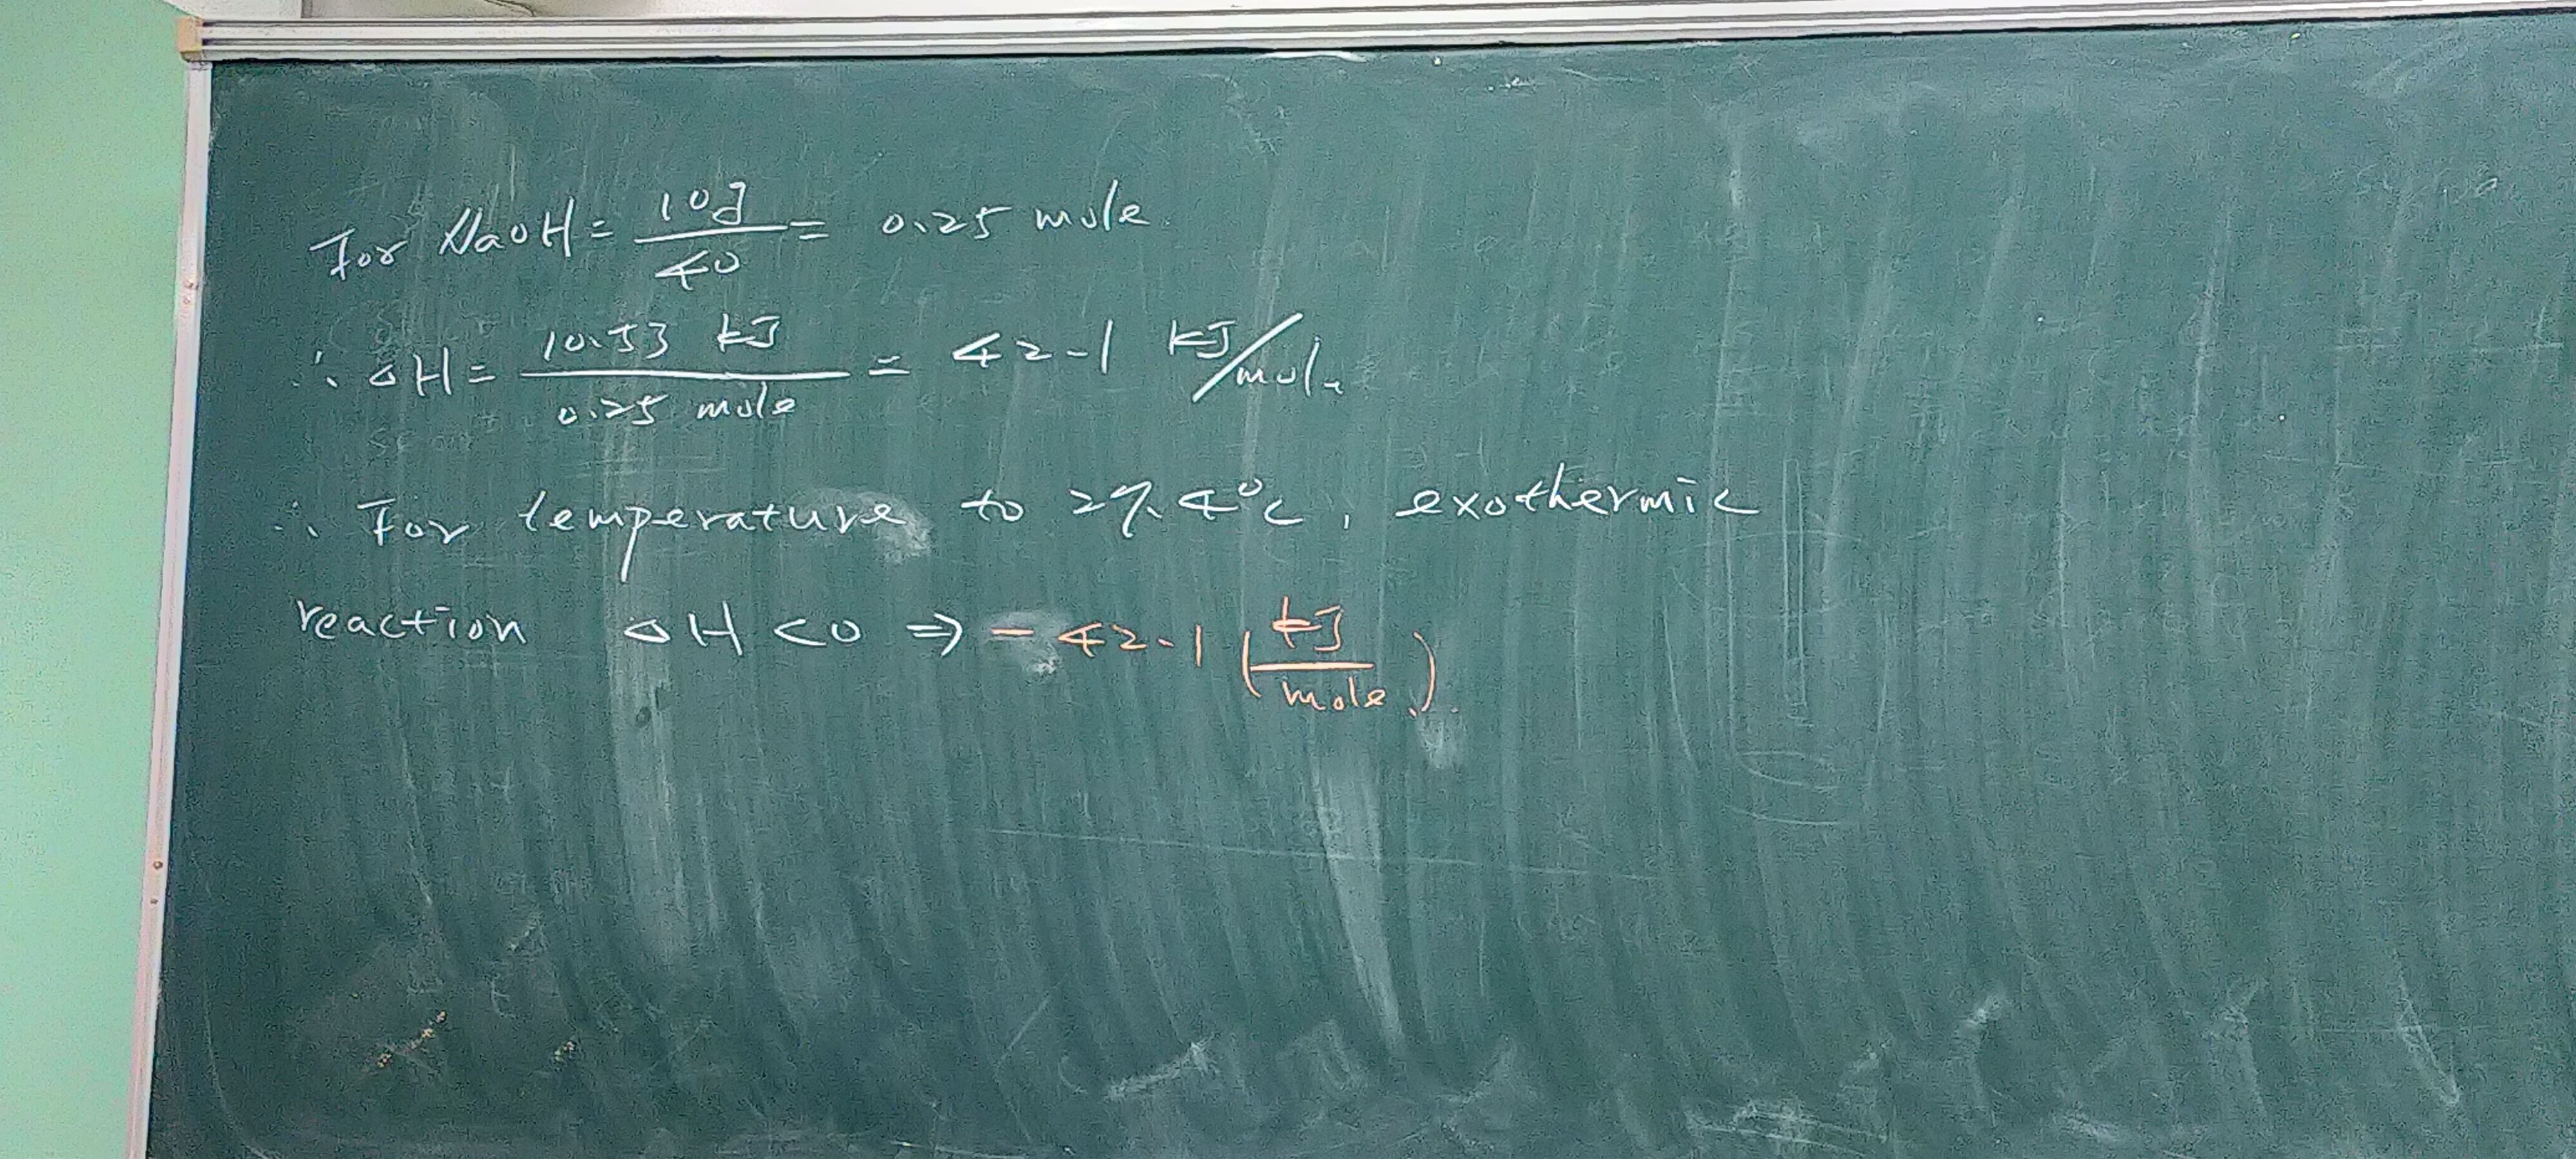 For NaOH = 10g/40 = 0.25 mole.
∴ ΔH = 10.53 kJ / 0.25 mole = 42.1 kJ/mole
∴ For temperature to 27.4°C, exothermic
reaction ΔH < 0 ⇒ - 42.1 (kJ/mole).